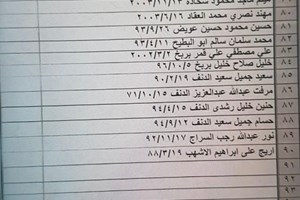 ٢٠٠٣/١١/١٣ هيثم ماجد محمود شحادة
٨٠ مهند نصري محمد العقاد ٢٠٠٣/٦/١٦
٨١ حسين محمود حسين عويض ٩٣/٩/٢٦
٨٢ محمد سلمان سالم ابو البطيح ٩٣/٤/١١
٨٣ علي مصطفى علي قمر بريخ ٢٠٠٢/٣/٢
٨٤ خليل صلاح خليل بريخ ٩٦/١٠/٥
٨٥ سعيد جميل سعيد الدنف ٩٠/٢/٩
٨٦ مرفت عبدالله عبدالعزيز الدنف ٧١/١٠/١٥
٨٧ حنين خليل رشدى الدنف ٩٤/٤/١٥
٨٨ حسام جميل سعيد الدنف ٩٤/٩/١٢
٨٩ نور عبدالله رجب السراج ٩٢/١١/١٧
٩٠ اريج على ابراهيم الاشهب ٨٨/٣/١٩
٩١
٩٢
٩٣